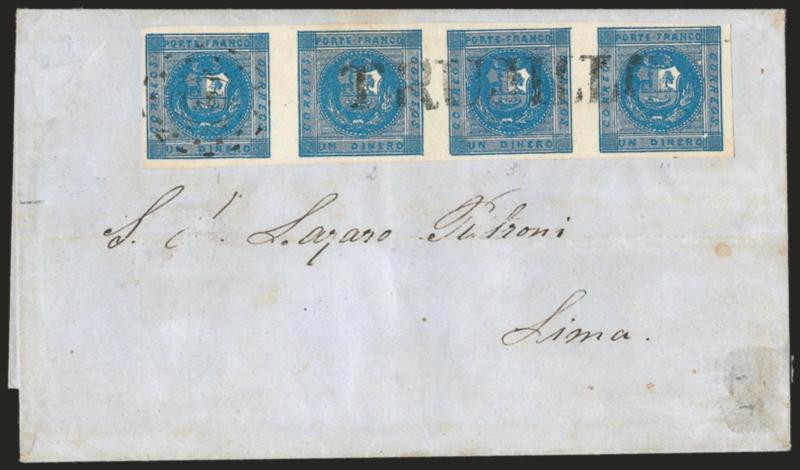 PORTE-FRANCO PORTE-FRANCO PORTE-FRANCO PORTE-FRANCO
CORREOS CORREOS CORREOS CORREOS CORREOS CORREOS CORREOS CORREOS
TRUJILLO
UN DINERO UN DINERO UN DINERO UN DINERO
2 3
S. D. Lazaro Patroni
Lima.